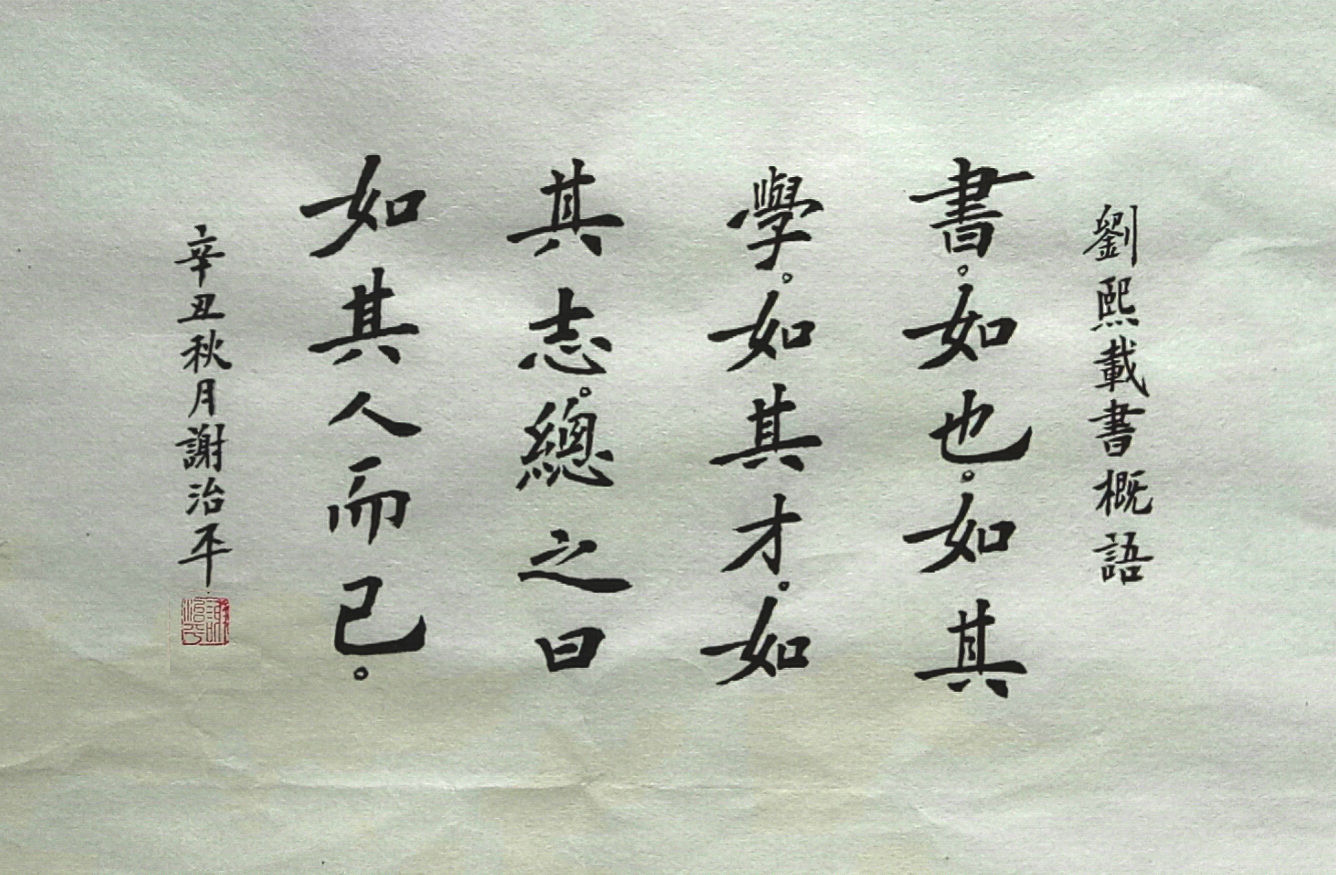 劉熙載書概語
書。如也。如其
學。如其才。如
其志。總之曰
如其人而已。
辛丑秋月謝治平